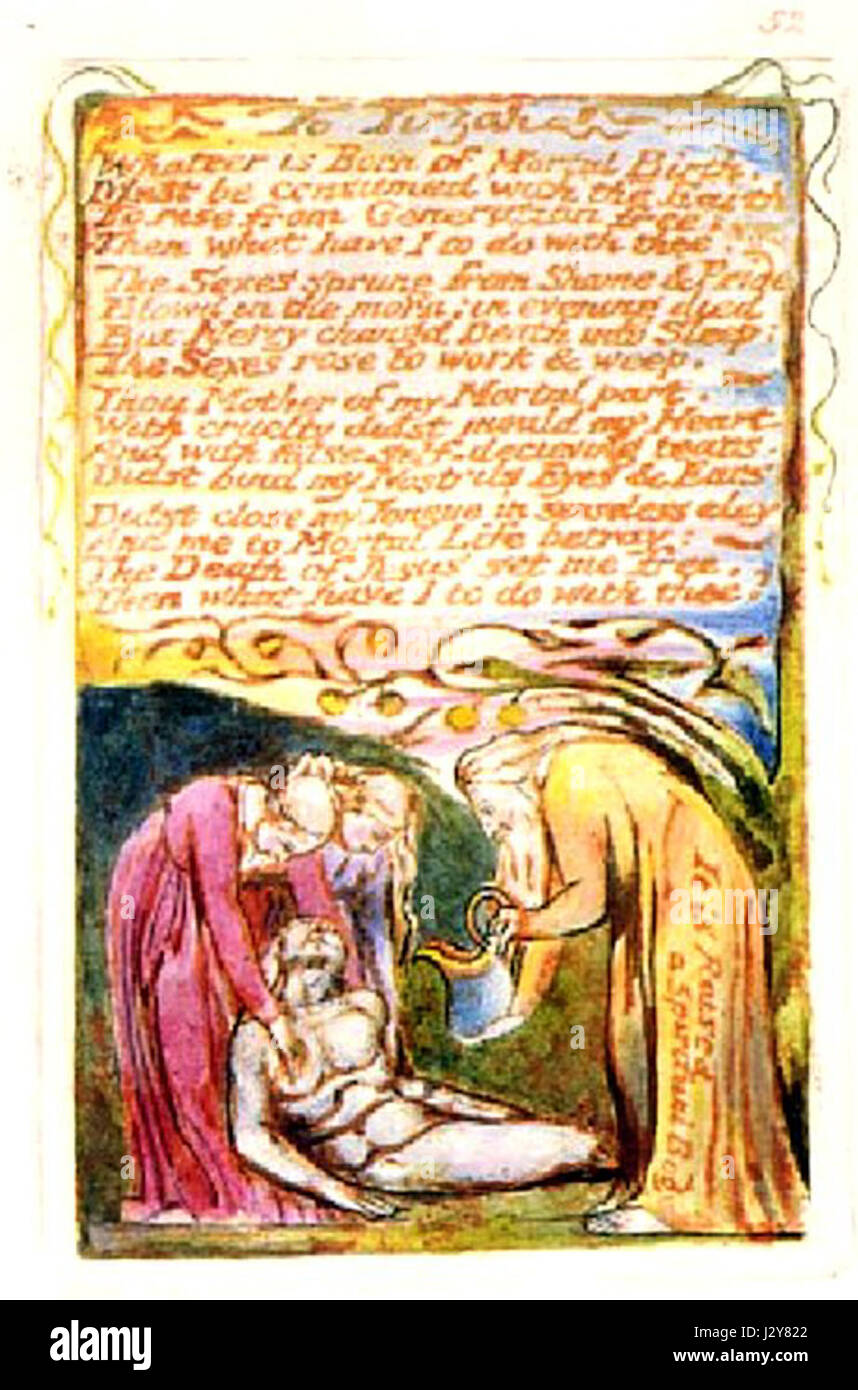 52
To Tirzah
Whatever is Born of Mortal Birth,
Must be consumed with the Earth
To rise from Generation free:
Then what have I to do with thee?
The Sexes sprung from Shame & Pride
Blow'd in the morn: in evening died
But Mercy chang'd Death into Sleep;
The Sexes rose to work & weep.
Thou Mother of my Mortal part.
With cruelty didst mould my Heart
And with false self-decieving tears
Didst bind my Nostrils Eyes & Ears
Didst close my Tongue in senseless clay
And me to Mortal Life betray:
The Death of Jesus set me free,
Then what have I to do with thee?
It is Raised
a Spiritual Body
alamy
alamy stock photo
J2Y822
www.alamy.com